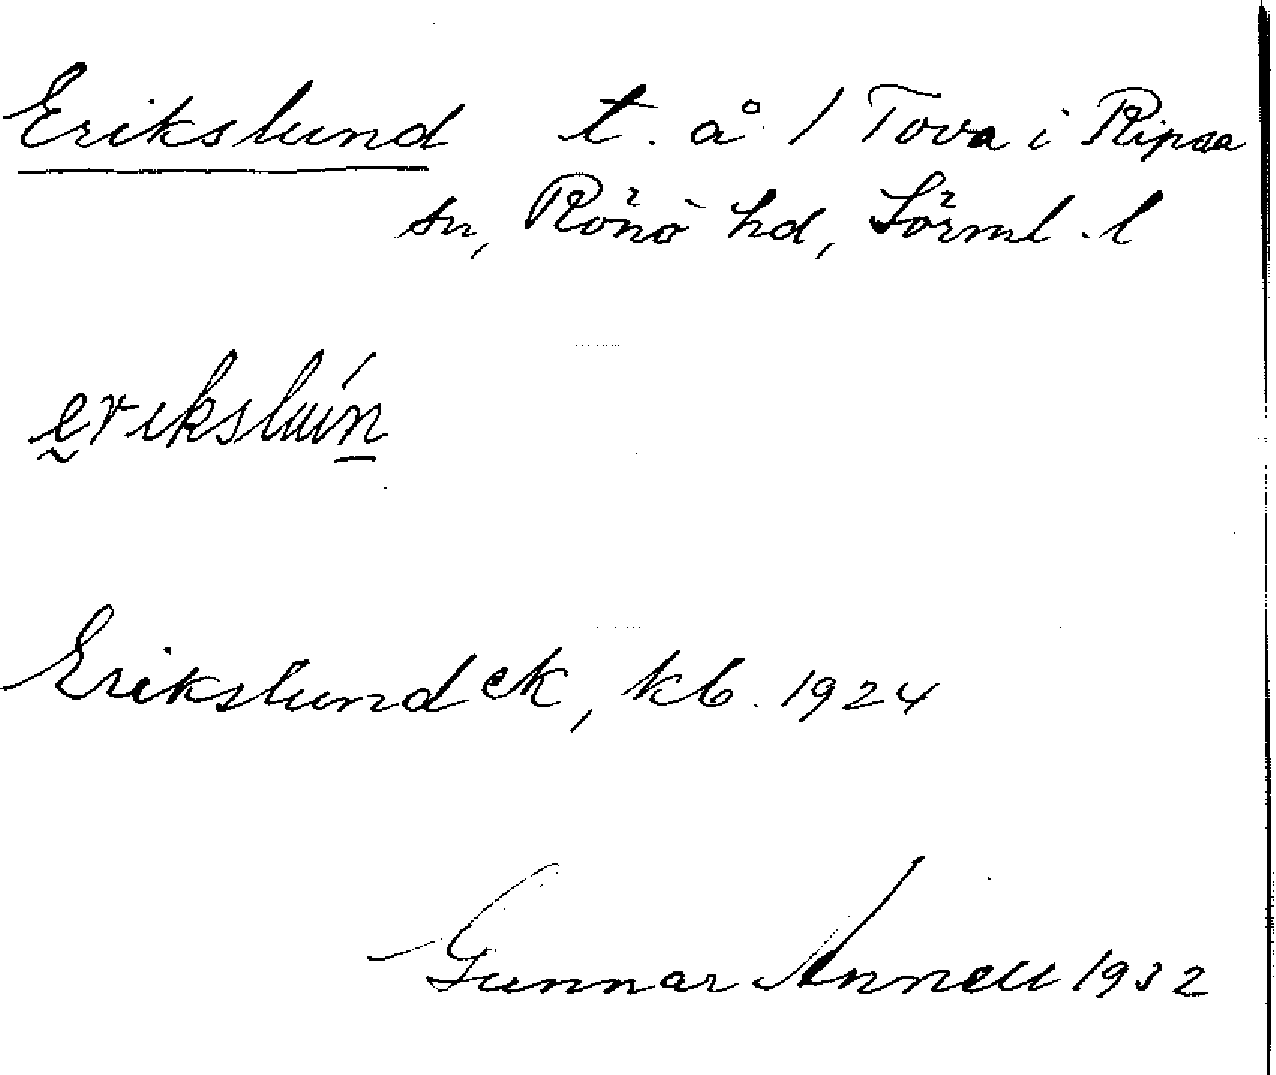 Erikslund t. å 1 Tova i Ripsa
sn, Rönö hd, Sörml. l
erikslún
Erikslund ek, kb. 1924
Gunnar Annell 1932